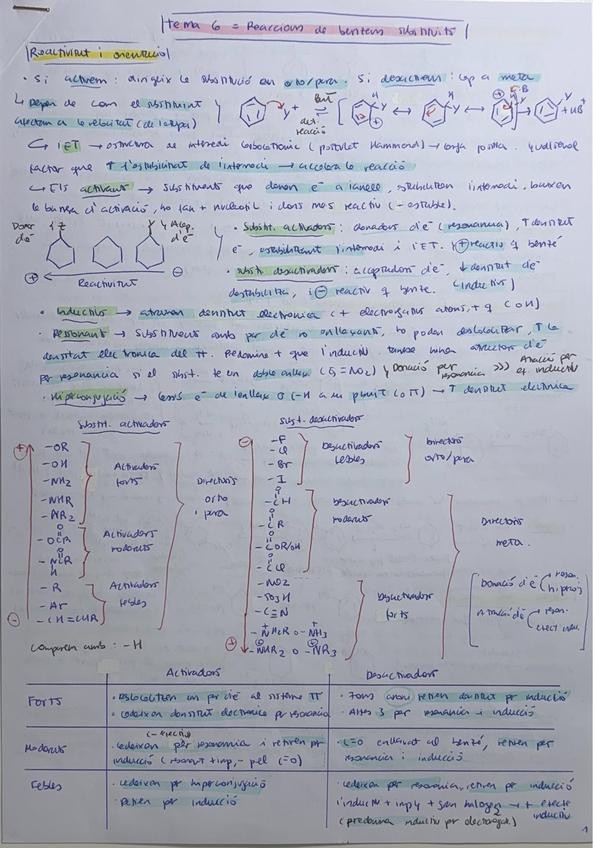 tema 6 = Reaccions de benzens substituïts
Reactivitat i orientació
· Si activem: dirigeix la substitució en orto/para. Si desactivem: cap a meta
↳ Depèn de com el substituint
afecten a la velocitat (de l'etapa)
Y
H
Y
H
Y
⊕
B
Y
+ HB⁺
↳ 1ET → estructura de intermedi carbocatiònic (postulat Hammond) → càrrega positiva. Qualsevol
factor que ↑ l'estabilitat de l'intermedi → accelera la reacció
↳ Els activant → substituents que donen e⁻ a l'anell, estabilitzen l'intermedi, baixen
la barrera d'activació, ho fan + nucleòfil i doncs més reactiu (- estable).
Donor
d'e⁻
Z
Y
Y Accep.
d'e⁻
⊕
Reactivitat
⊖
· Substit. activadors: donadors d'e⁻ (resonància), ↑ densitat
e⁻, estabilitzant l'intermedi i l'ET. ⊕ reactiu q benzè
· Subst. desactivadors: acceptadors d'e⁻, ↓ densitat de
destabilitza, i ⊖ reactiu q benze. (inductius)
· Inductius → atrauen densitat electrònica (+ electronegatius atoms, + q C o H)
· Ressonant → Substituents amb par d'e⁻ no enllaçants, ho poden deslocalitzar, ↑ la
densitat electrònica del π. Predomina + que l'inductiu. també
per resonancia si el subst. te un doble enllaç (ej = NO₂) Donació per resonancia >>> Atracció per ef. inductiu
· Hiperconjugació → cessió e⁻ de l'enllaç σ C-H a un p buit (o π) → ↑ densitat electrònica
Substit. activadors
⊕
-OR
-OH
-NH₂
-NHR
-NR₂
Activadors
forts
O
-OCR
O
-NCR
H
Activadors
moderats
-R
-Ar
-CH=CHR
Activadors
febles
⊖
Directors
orto
i para
Comparem amb: -H
Subst. desactivadors
⊖
-F
-Cl
-Br
-I
Desactivadors
febles
Directors
orto/para
O
-CH
O
-CR
O
-COR/OH
O
-CCl
Desactivadors
moderats
-NO₂
-SO₃H
-C≡N
-NH₂R o -NH₃
⊕
-NHR₂ o -NR₃
Desactivadors
forts
⊕
Directors
meta.
Donació d'e⁻
reson.
hiperconj
Atracció d'e⁻
reson.
efect indu.
Activadors
Desactivadors
FORTS
· Deslocalitzen un par d'e⁻ al sistema π
· cedeixen densitat electrònica per resonancia
retiren densitat per inducció
· Altres 3 per resonancia i inducció
Moderats
(- efectiu)
· cedeixen per resonancia i retiren per
inducció (resonant + imp, - pel C=O)
· C=O enllaçat al benzè, retiren per
resonancia i inducció
Febles
· cedeixen per hiperconjugació
· Retiren per inducció
· cedeixen per resonancia, retiren per inducció
l'inductiu + imp y + gran halogen → + efecte
inductiu
(predomina inductiu per electroneg.)
1